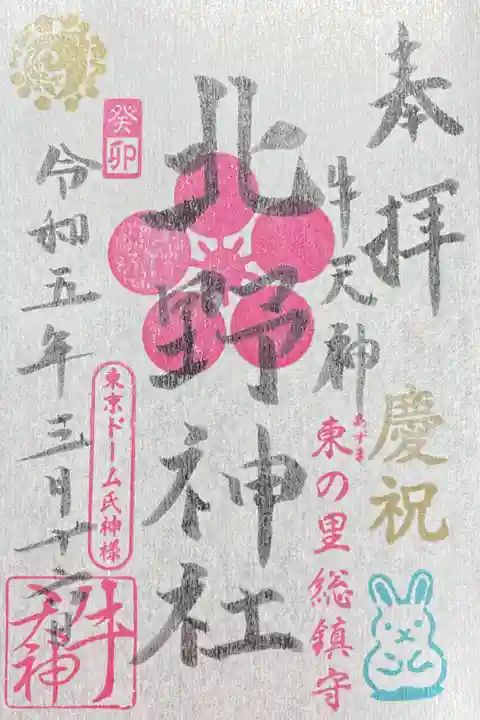 奉拝
慶祝
牛天神
あずま
東の里総鎮守
北野神社
癸卯
東京ドーム氏神様
令和五年三月十六日
牛天神